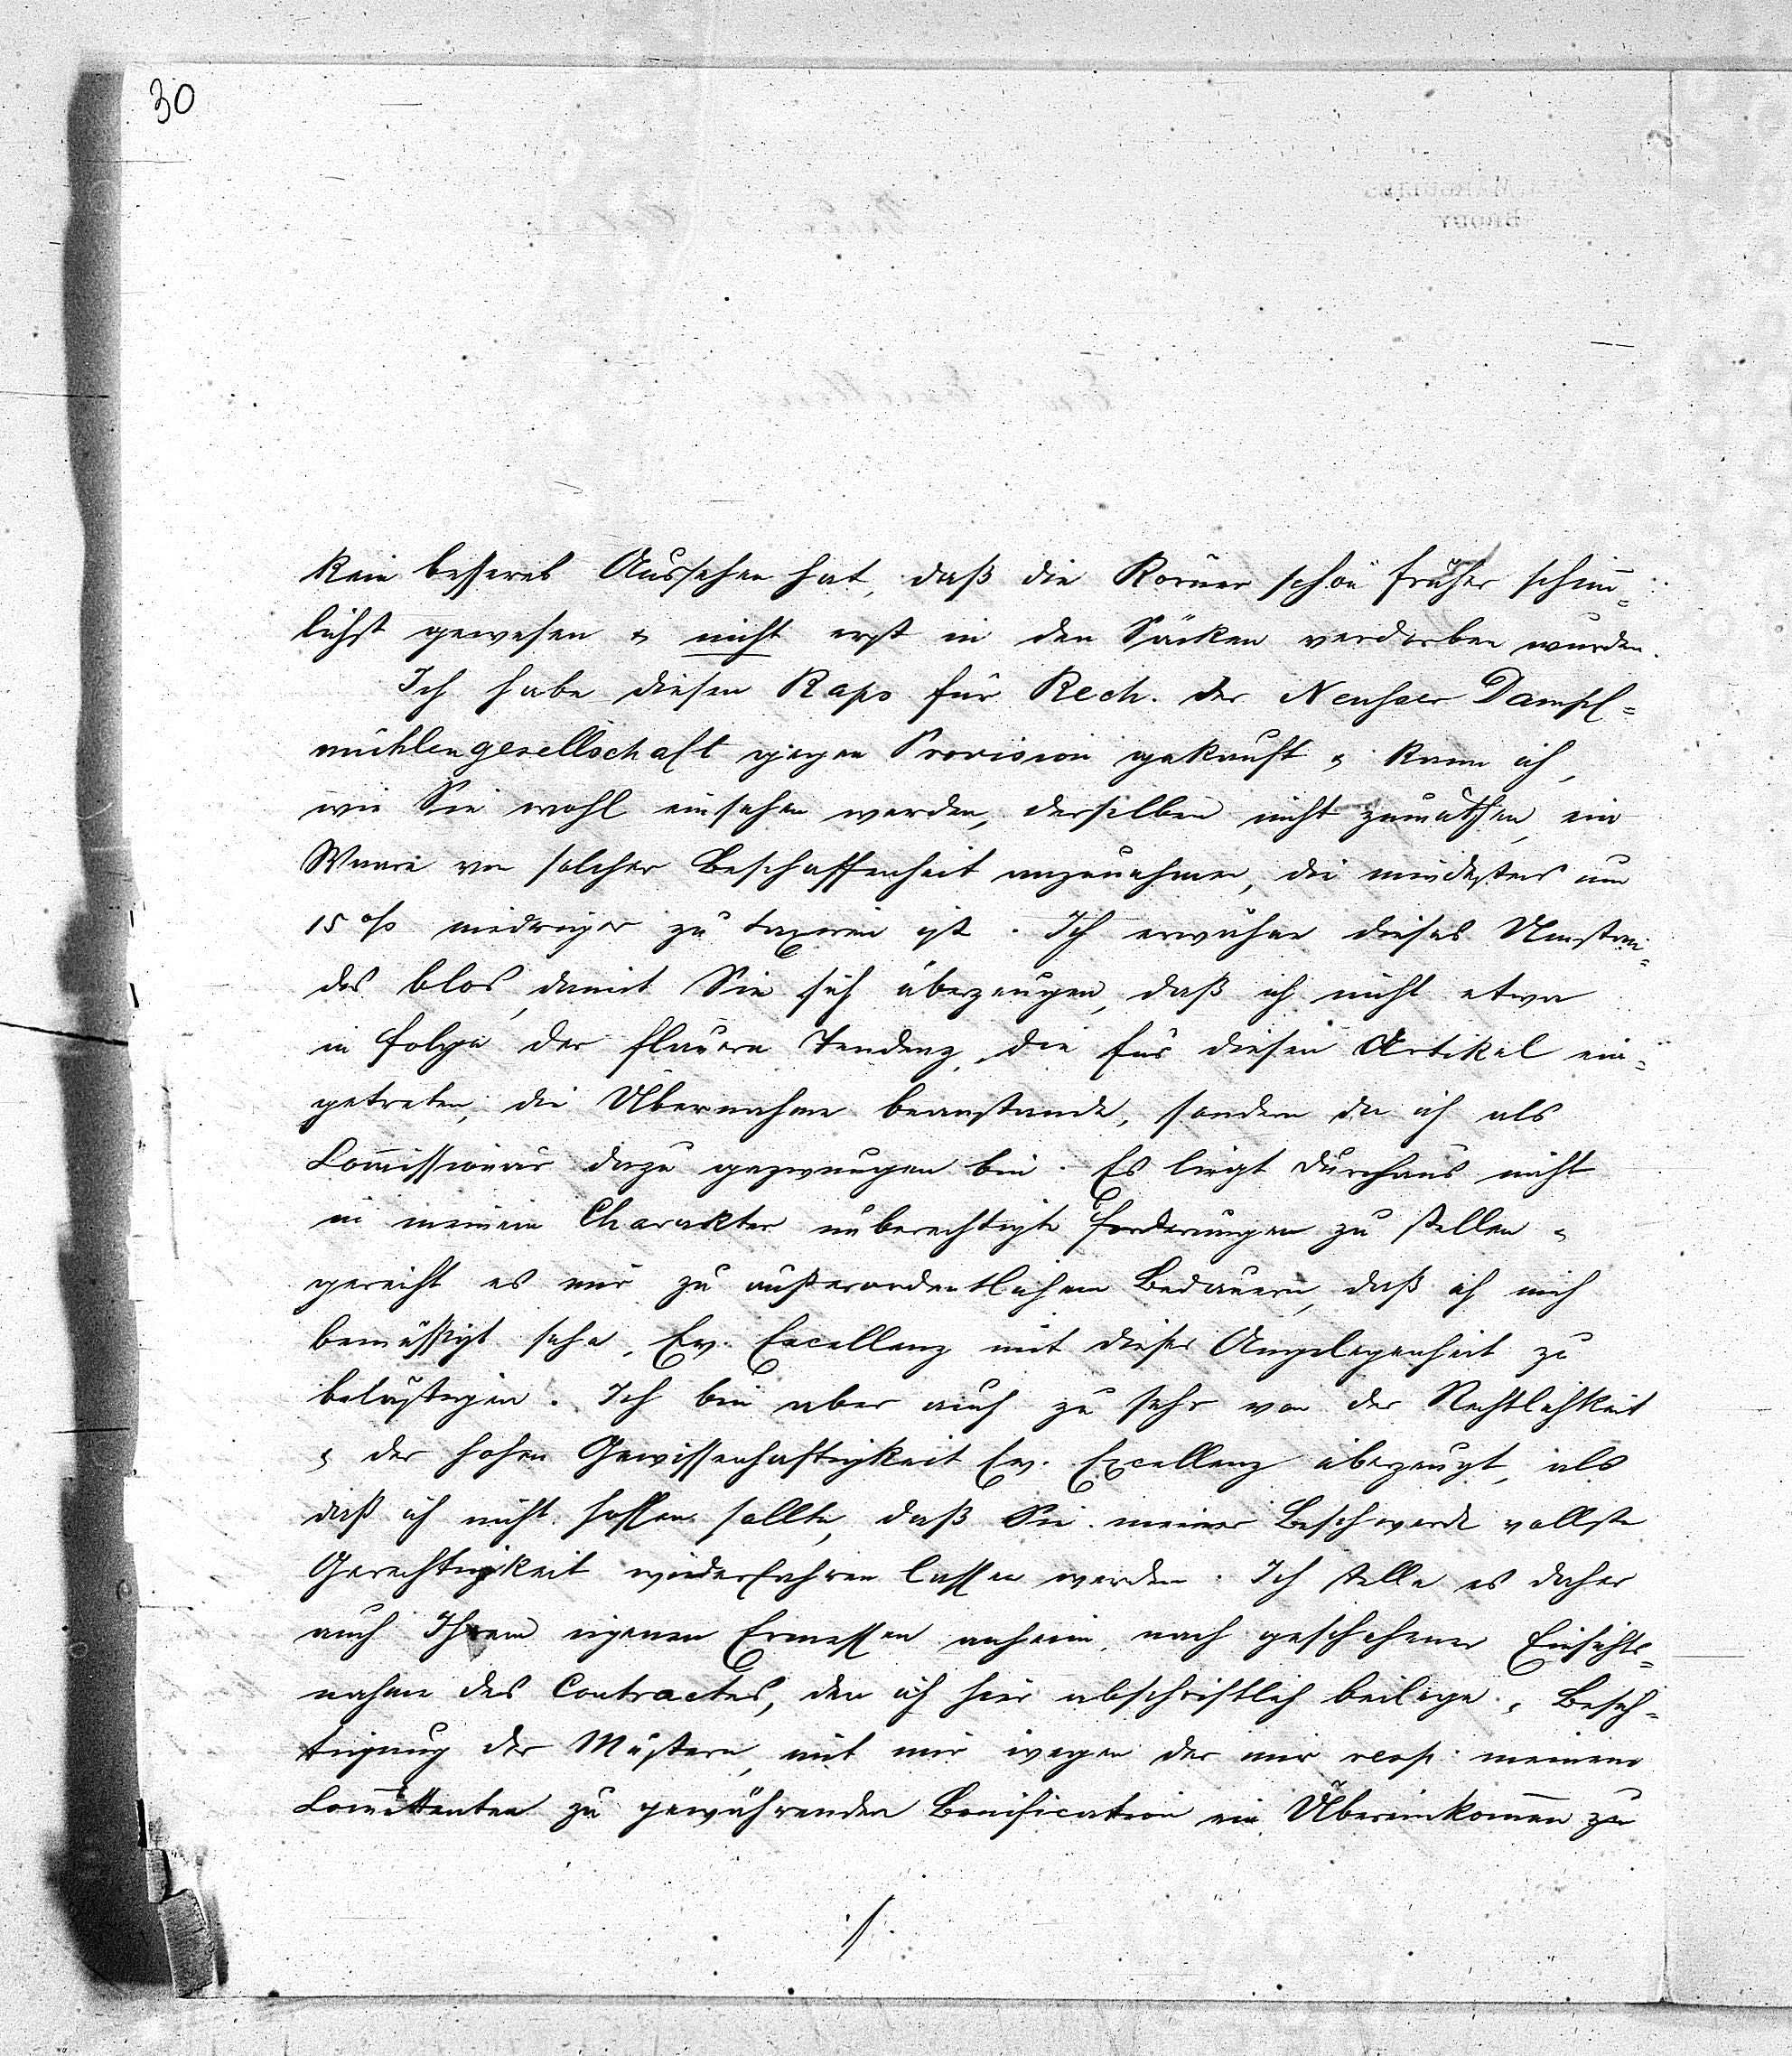 30
kein besseres Aussehen hat, daß die Körner schon früher schim̄=
lichst gewesen & nicht erst in den Säcken verdorben wurden.
Ich habe diesen Raps für Rech. der Neuhser Dampf=
mühlengesellschaft gegen Provision gekauft & kann ich,
wie Sie wohl einsehen werden, derselben nicht zumuthen, eine
Waare von solcher Beschaffenheit anzunehmen, die mindestens um
15 % niedriger zu taxiren ist. Ich erwähne dieses Umstan=
des blos, damit Sie sich überzeugen, daß ich nicht etwa
in Folge der flauern Tendenz, die für diesen Artikel ein=
getreten, die Übernahme beanstande, sondern da ich als
Com̄issionär dazu gezwungen bin. Es liegt durchaus nicht
in meinem Charakter unberechtigte Forderungen zu stellen &
gereicht es mir zu außerordentlichem Bedauern, daß ich mich
bemüssigt sehe, Ew. Excellenz mit dieser Angelegenheit zu
belästigen. Ich bin aber auch zu sehr von der Rechtlichkeit
& der hohen Gewissenhaftigkeit Ew. Excellenz überzeugt, als
daß ich nicht hoffen sollte, daß Sie meiner Beschwerde vollste
Gerechtigkeit wiederfahren lassen werden. Ich stelle es daher
auch Ihrem eigenen Ermessen anheim, nach geschehener Einsichts=
nahme des Contractes, den ich hier abschriftlich beilege & Besich=
tigung der Mustern, mit mir wegen der mir resp. meinem
Com̄ittenten zu gewährenden Bonification ein Übereinkom̄en zu
./.